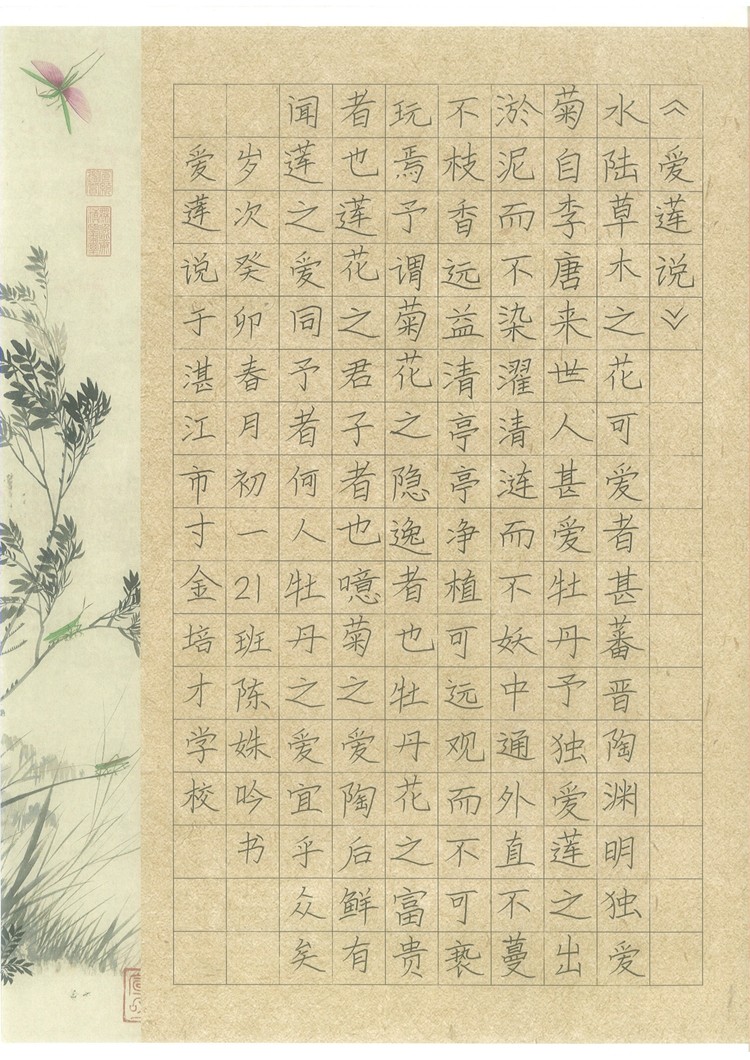 《爱莲说》
水陆草木之花可爱者甚蕃晋陶渊明独爱
菊自李唐来世人甚爱牡丹予独爱莲之出
淤泥而不染濯清涟而不妖中通外直不蔓
不枝香远益清亭亭净植可远观而不可亵
玩焉予谓菊花之隐逸者也牡丹花之富贵
者也莲花之君子者也噫菊之爱陶后鲜有
闻莲之爱同予者何人牡丹之爱宜乎众矣
岁次癸卯春月初一21班陈姝吟书
爱莲说于湛江市寸金培才学校